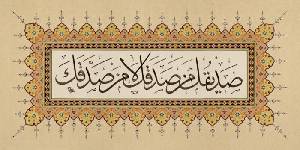 صديقك من صدقك لا من صدّقك